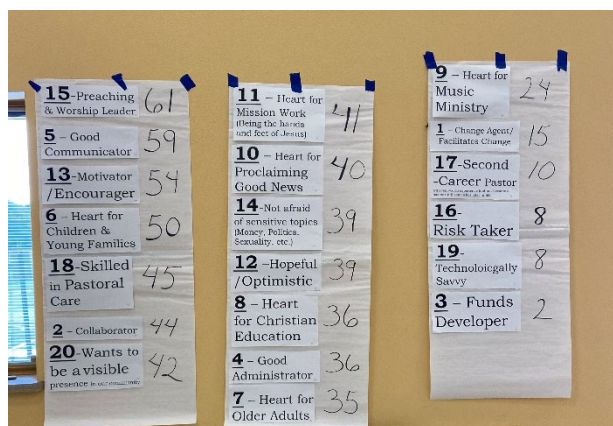 15-Preaching
& Worship Leader 61
5 – Good
Communicator 59
13-Motivator
/Encourager 54
6 – Heart for
Children &
Young Families 50
18-Skilled
in Pastoral
Care 45
2 – Collaborator 44
20-Wants to
be a visible
presence in our community 42
11 – Heart for
Mission Work
(Being the hands
and feet of Jesus) 41
10 – Heart for
Proclaiming
Good News 40
14-Not afraid
of sensitive topics
(Money, Politics,
Sexuality, etc.) 39
12-Hopeful
/Optimistic 39
8 – Heart
for Christian
Education 36
4 – Good
Administrator 36
7 – Heart for
Older Adults 35
9 – Heart for
Music
Ministry 24
1 – Change Agent/
Facilitates Change 15
17-Second
-Career Pastor 10
16-
Risk Taker 8
19-
Technoloicgally
Savvy 8
3 – Funds
Developer 2